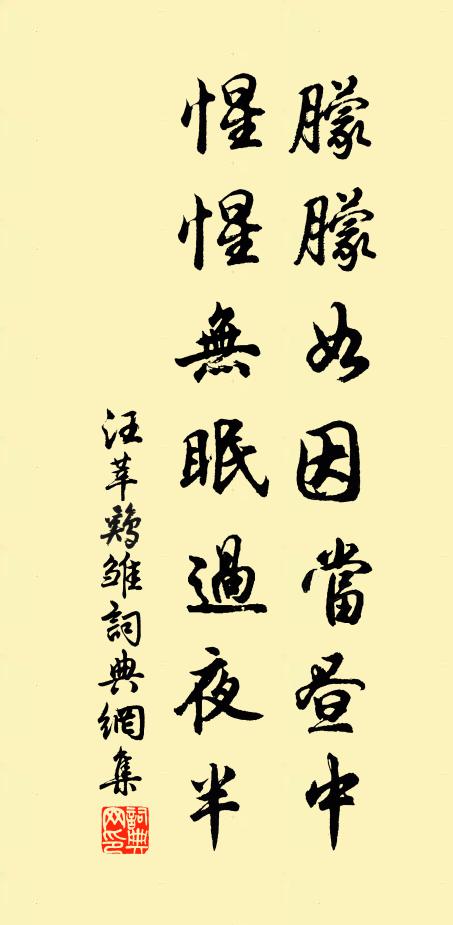 朦朦如因當晝中
惺惺無眠過夜半
汪莘鷄雛詞典網集
詞典網印